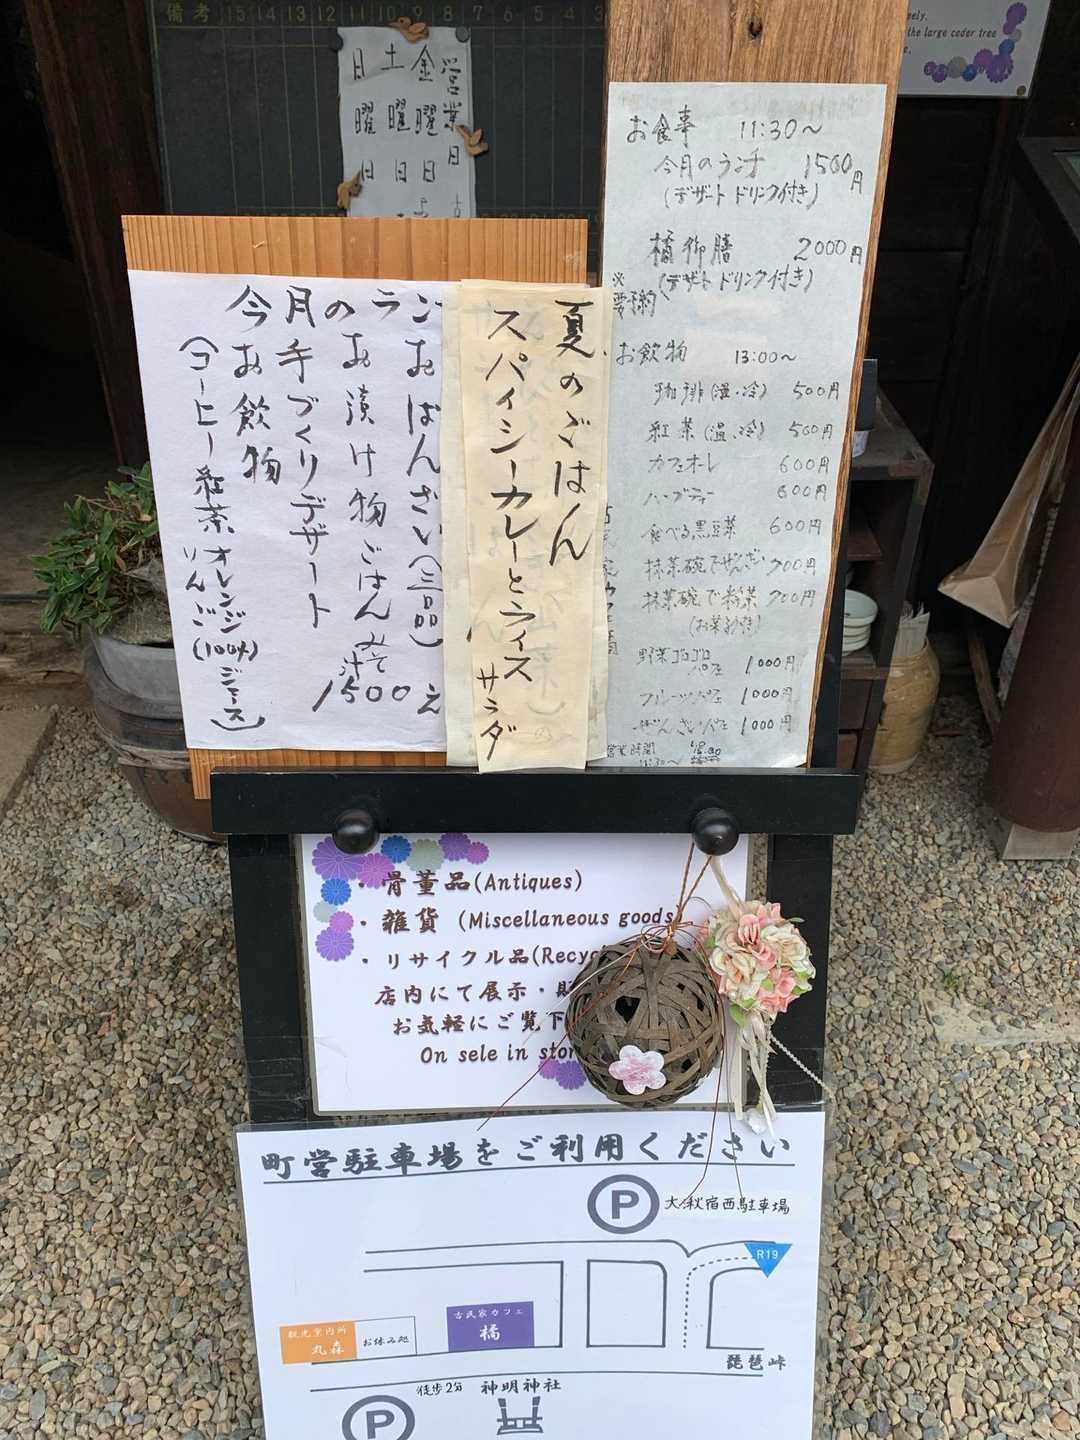 備考 15 14 13 12 11 10 9 8 7 6 5 4 3
営業日
金曜日
土曜日
日曜日
the large ceder tree
お食事 11:30〜
今月のランチ 1500円
(デザート ドリンク付き)
橘御膳 2000円
※要予約
(デザート ドリンク付き)
お飲物 13:00〜
珈琲(温・冷) 500円
紅茶(温・冷) 500円
カフェオーレ 600円
ハーブティー 600円
食べる黒豆茶 600円
抹茶碗でぜんざい 700円
抹茶碗で粉茶 700円
(お菓子付き)
野菜ゴロゴロパフェ 1000円
フルーツパフェ 1000円
ぜんざいパフェ 1000円
営業時間
夏のごはん
スパイシーカレーとライス
サラダ
今月のラン
おばんざい(三品)
お漬け物 ごはん みそ汁
手づくりデザート
お飲物 1500え
(コーヒー 紅茶 オレンジ りんご (100%) ジュース)
・骨董品(Antiques)
・雑貨 (Miscellaneous goods)
・リサイクル品(Recyc
店内にて展示・販
お気軽にご覧下
On sele in stor
町営駐車場をご利用ください
P 大湫宿西駐車場
R19
古民家カフェ
橘
観光案内所
丸森
お休み処
琵琶峠
徒歩2分 神明神社
P